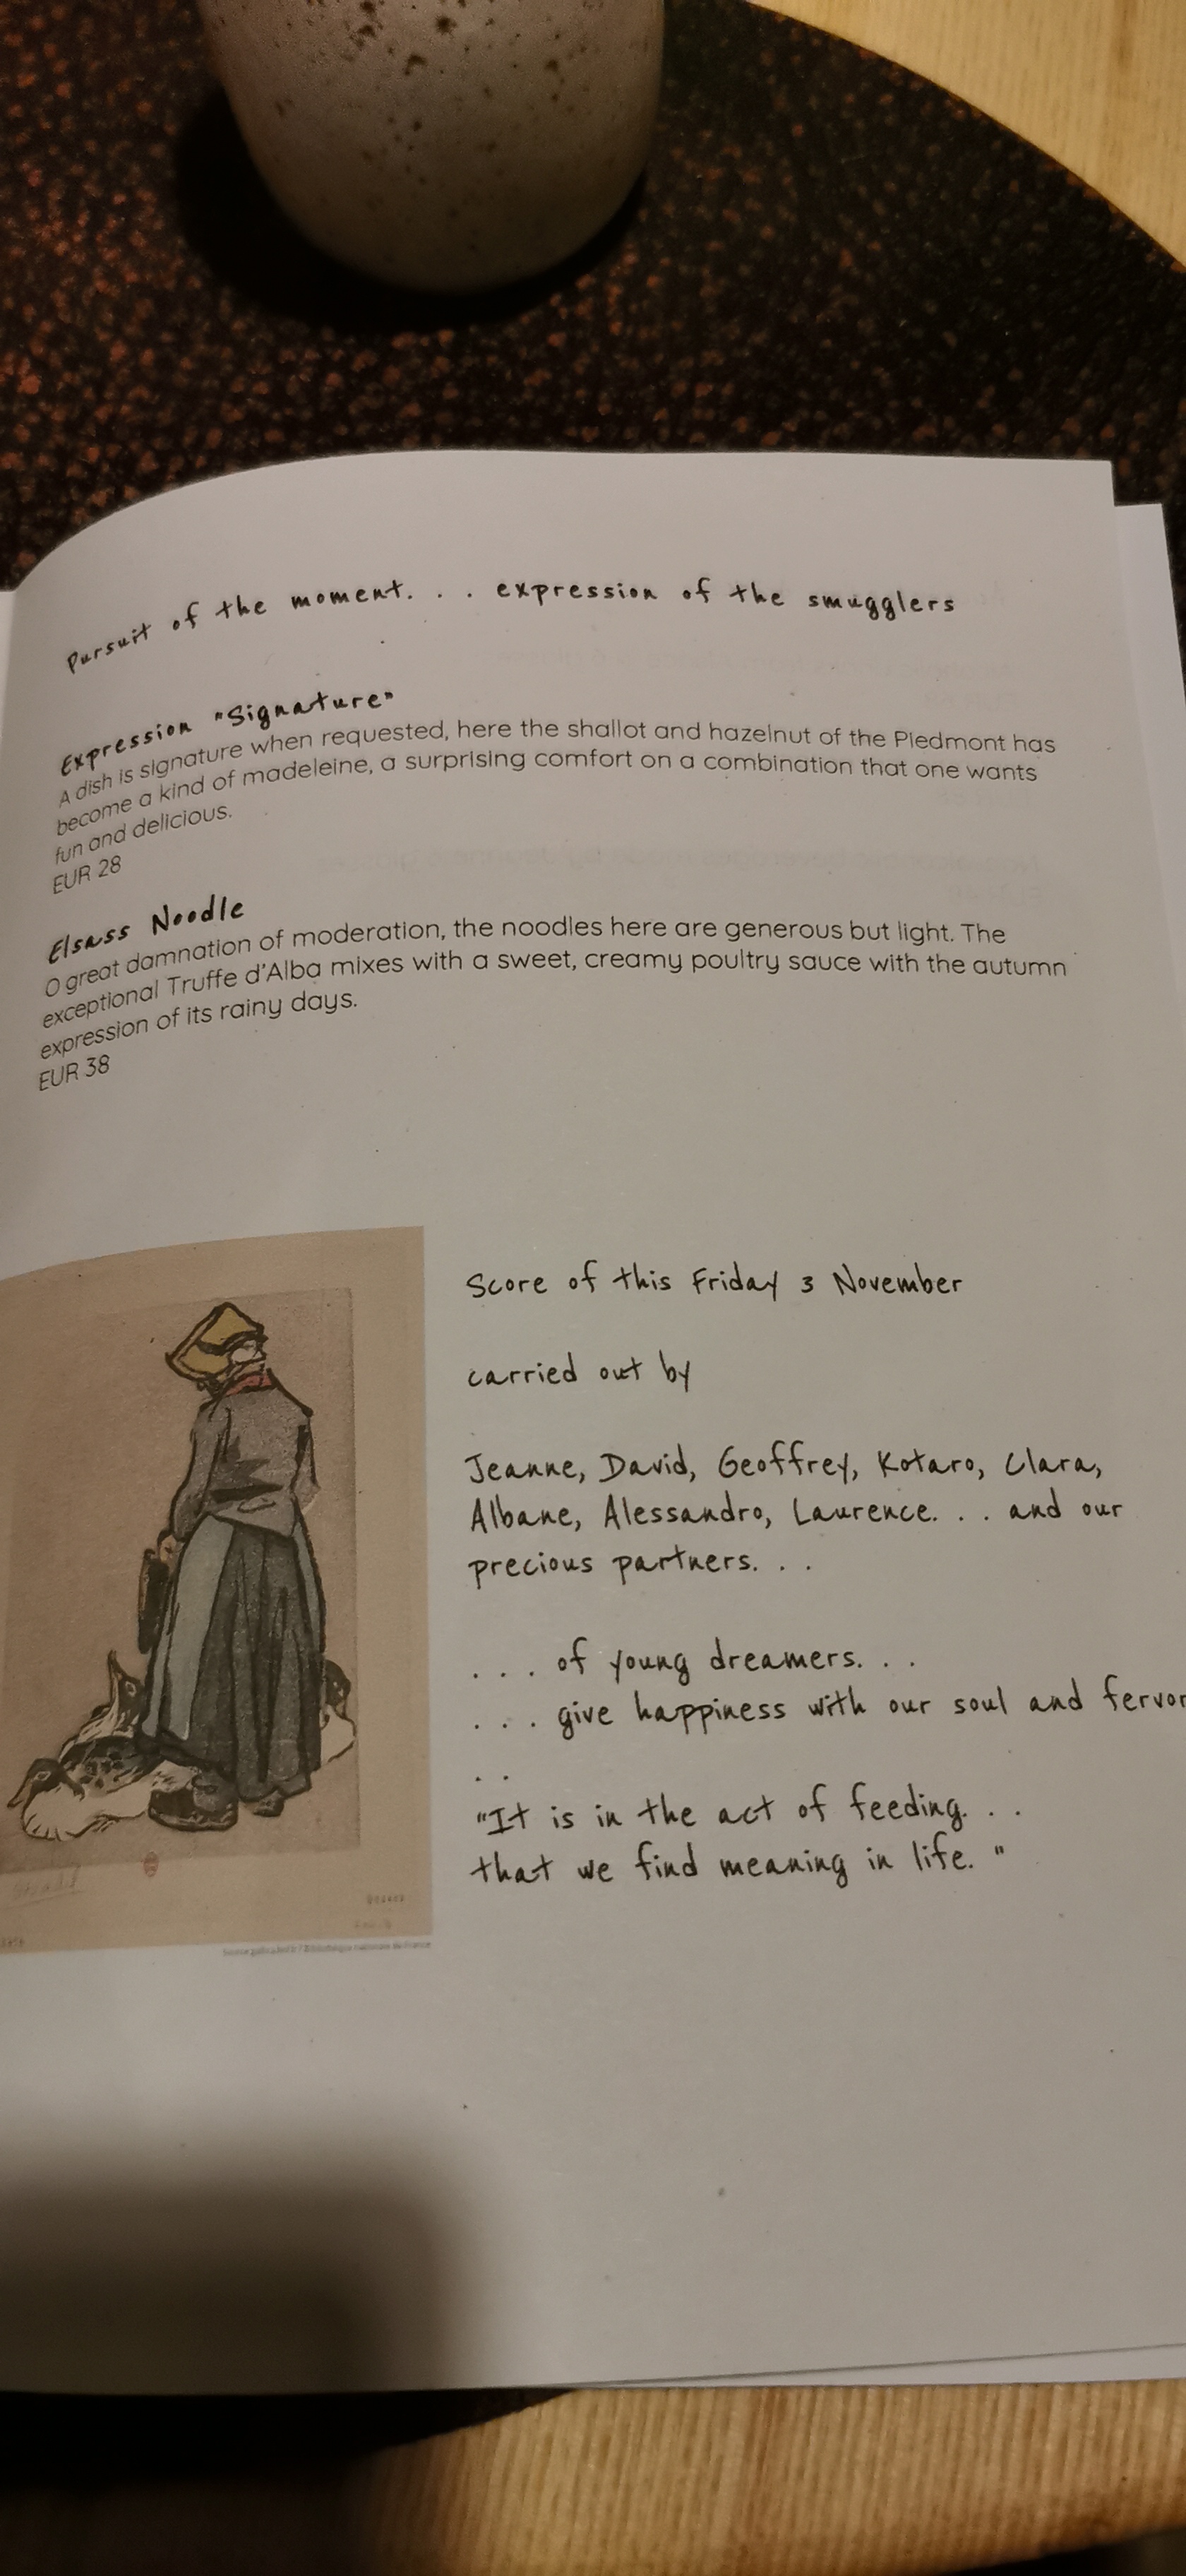 Pursuit of the moment. . . expression of the smugglers
Expression "Signature"
A dish is signature when requested, here the shallot and hazelnut of the Piedmont has
become a kind of madeleine, a surprising comfort on a combination that one wants
fun and delicious.
EUR 28
Elsass Noodle
O great damnation of moderation, the noodles here are generous but light. The
exceptional Truffe d'Alba mixes with a sweet, creamy poultry sauce with the autumn
expression of its rainy days.
EUR 38
Score of this Friday 3 November
carried out by
Jeanne, David, Geoffrey, Kotaro, Clara,
Albane, Alessandro, Laurence. . . and our
precious partners. . .
. . . of young dreamers. . .
. . . give happiness with our soul and fervor
. .
"It is in the act of feeding. . .
that we find meaning in life. "